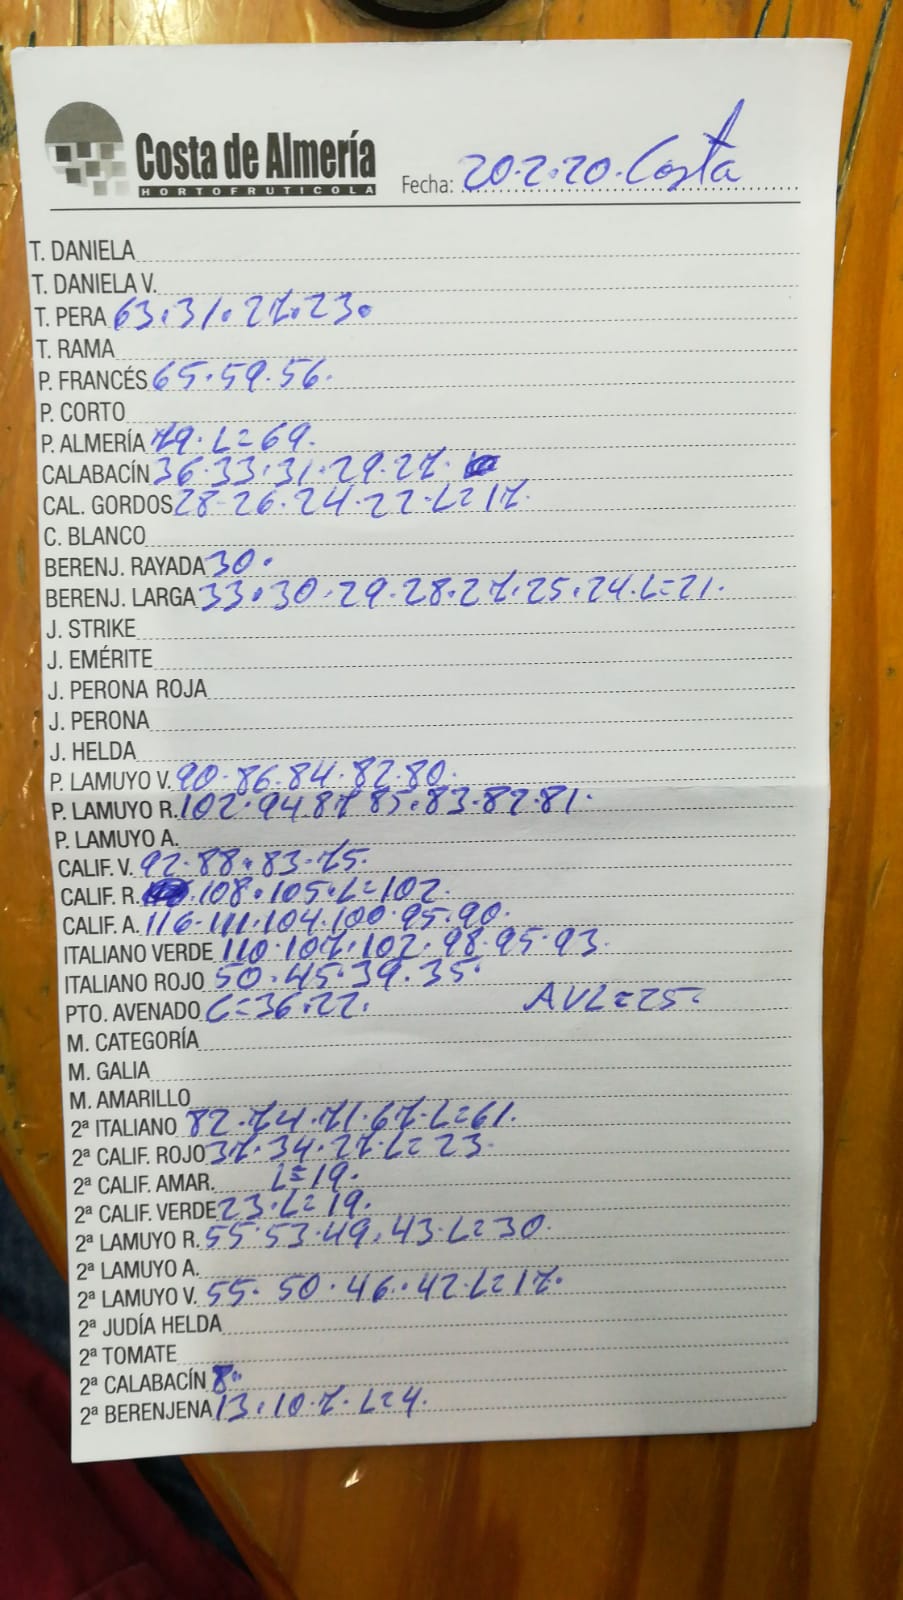 Costa de Almería
HORTOFRUTICOLA
Fecha: 20.2.20. Costa
T. DANIELA
T. DANIELA V.
T. PERA 63.31.27.23.
T. RAMA
P. FRANCÉS 65.59.56.
P. CORTO
P. ALMERÍA 79. L=69.
CALABACÍN 36.33.31.29.27.
CAL. GORDOS 28-26.24.22-L=17.
C. BLANCO
BERENJ. RAYADA 30.
BERENJ. LARGA 33.30.29.28.27.25.24.L=21.
J. STRIKE
J. EMÉRITE
J. PERONA ROJA
J. PERONA
J. HELDA
P. LAMUYO V. 90.86.84.82.80.
P. LAMUYO R. 102.94.87.85.83.82.81.
P. LAMUYO A.
CALIF. V. 92.88.83.75.
CALIF. R. 108.105.L=102.
CALIF. A. 116-111.104.100.95.90.
ITALIANO VERDE 110.107.102.98.95.93.
ITALIANO ROJO 50.45.39.35.
PTO. AVENADO C=36.22. AVL=25-
M. CATEGORÍA
M. GALIA
M. AMARILLO
2ª ITALIANO 82.74.71.67.L=61.
2ª CALIF. ROJO 37.34.27.L=23.
2ª CALIF. AMAR. L=19.
2ª CALIF. VERDE 23.L=19.
2ª LAMUYO R. 55.53.49.43.L=30.
2ª LAMUYO A.
2ª LAMUYO V. 55.50.46.42.L=17.
2ª JUDÍA HELDA
2ª TOMATE
2ª CALABACÍN 8.
2ª BERENJENA 13.10.7.L=4.